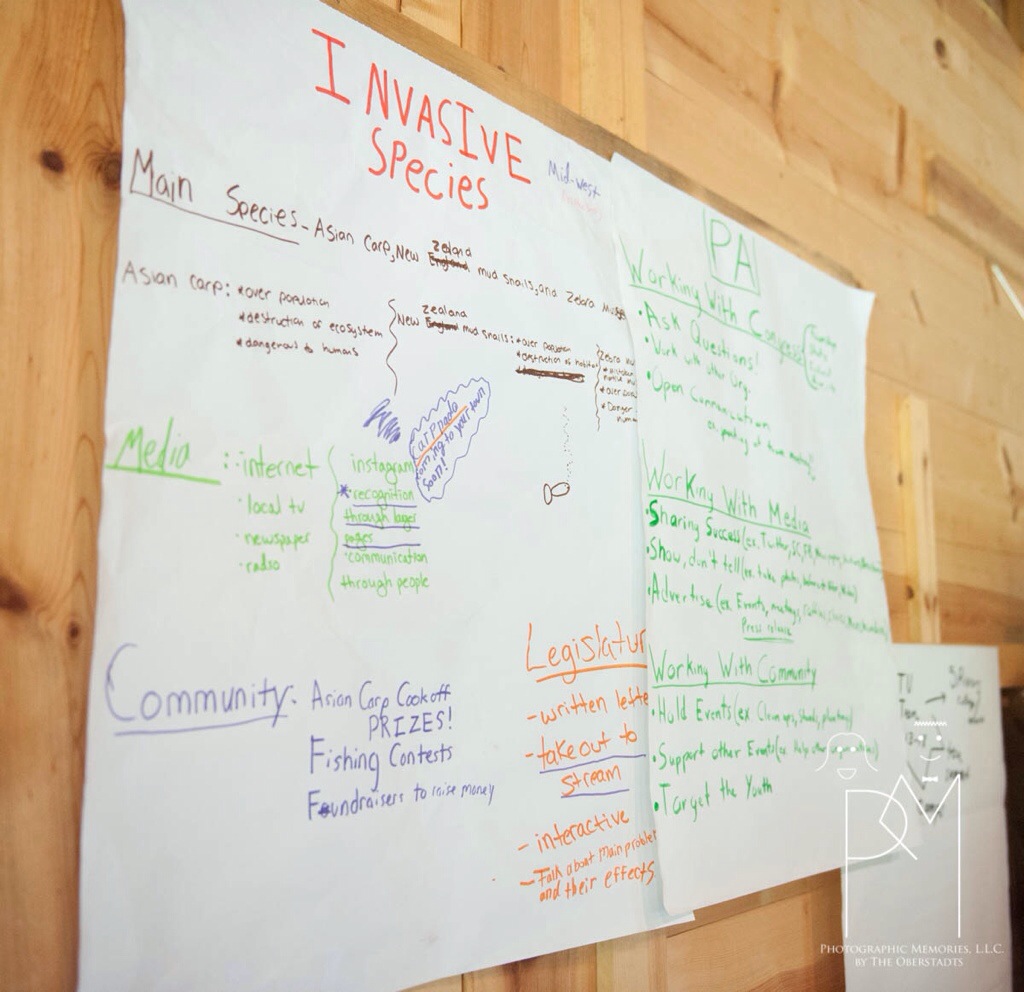 INVASIVE
SPecies
Mid-west
Main Species - Asian Carp, New Zeland England mud snails, and Zebra
Asian carp: *over population
*destruction of ecosystem
*dangerous to humans
New zealand England mud snails: *over population
*destruction of habitat
Zebra
native
*over
*Danger
human
carpnado
coming to your town
soon!
Media : ·internet
·local tv
·newspaper
·radio
instagram
*recognition
through larger
pages
·communication
through people
Community - Asian Carp Cookoff
PRIZES!
Fishing Contests
Fundraisers to raise money
Legislatur
-written lette
-take out to
stream
-interactive
-Talk about Main problem
and their effects
PA
Working With Congress
·Ask Questions!
·Work with other Org.
·Open Communication
Working With Media
·Sharing Success (ex. Twitter,
·Show, don't tell (ex. take photo,
·Advertise (ex. Events, meetings,
Press release
Working With Community
·Hold Events (ex. Clean ups,
·Support other Events (ex. Help other
·Target the Youth
TU
PHOTOGRAPHIC MEMORIES, L.L.C.
BY THE OBERSTADTS